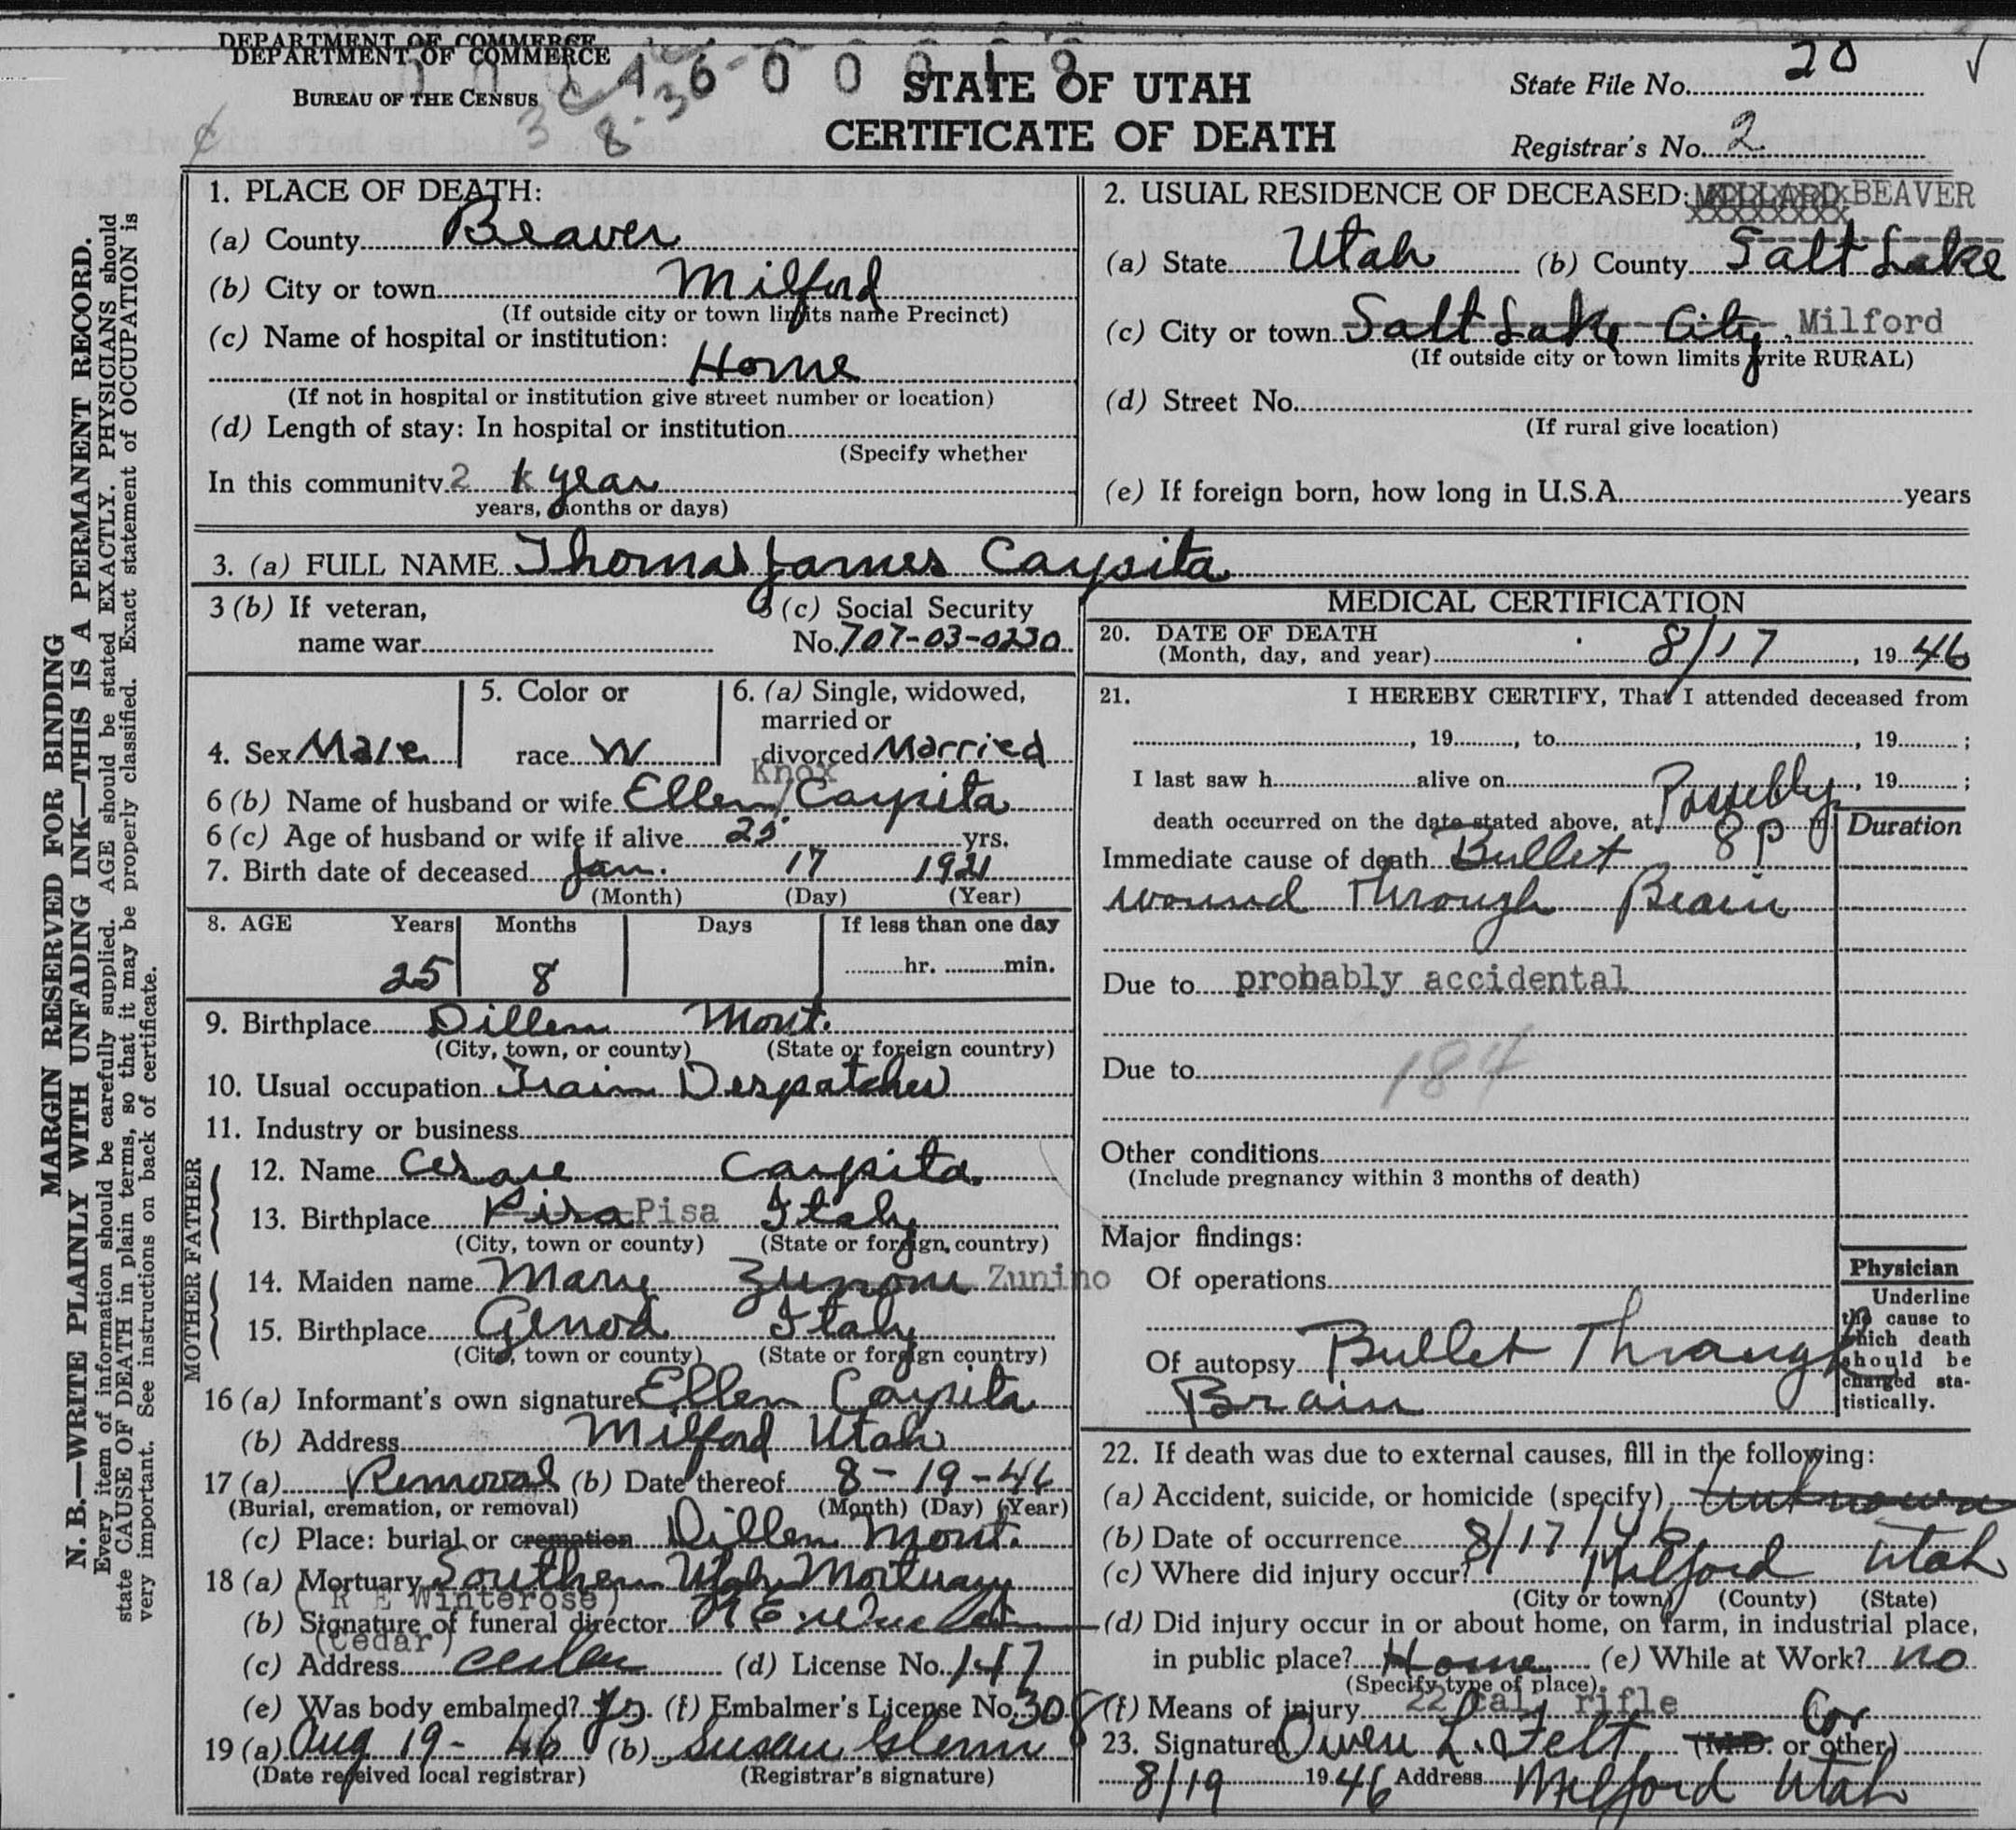 DEPARTMENT OF COMMERCE
DEPARTMENT OF COMMERCE
BUREAU OF THE CENSUS
STATE OF UTAH
CERTIFICATE OF DEATH
State File No. 20
Registrar's No. 2
MARGIN RESERVED FOR BINDING
N. B.—WRITE PLAINLY WITH UNFADING INK—THIS IS A PERMANENT RECORD.
Every item of information should be carefully supplied. AGE should be stated EXACTLY. PHYSICIANS should
state CAUSE OF DEATH in plain terms, so that it may be properly classified. Exact statement of OCCUPATION is
very important. See instructions on back of certificate.
1. PLACE OF DEATH:
(a) County Beaver
(b) City or town Milford
(If outside city or town limits name Precinct)
(c) Name of hospital or institution:
Home
(If not in hospital or institution give street number or location)
(d) Length of stay: In hospital or institution
(Specify whether
In this community 2 year
years, months or days)
2. USUAL RESIDENCE OF DECEASED: MILLARD BEAVER
(a) State Utah (b) County Salt Lake
(c) City or town Salt Lake City Milford
(If outside city or town limits write RURAL)
(d) Street No.
(If rural give location)
(e) If foreign born, how long in U.S.A. years
3. (a) FULL NAME Thomas James Caysita
3 (b) If veteran,
name war
3 (c) Social Security
No. 707-03-0230
4. Sex Male
5. Color or
race W
6. (a) Single, widowed,
married or
divorced Married
Knox
6 (b) Name of husband or wife Ellen / Caysita
6 (c) Age of husband or wife if alive 25 yrs.
7. Birth date of deceased Jan. 17 1921
(Month) (Day) (Year)
8. AGE Years Months Days If less than one day
25 8 hr. min.
9. Birthplace Dillen Mont.
(City, town, or county) (State or foreign country)
10. Usual occupation Train Despatcher
11. Industry or business
FATHER
12. Name Cesare Caysita
13. Birthplace Pisa Pisa Italy
(City, town or county) (State or foreign country)
MOTHER
14. Maiden name Mary Zunoni Zunino
15. Birthplace Genoa Italy
(City, town or county) (State or foreign country)
16 (a) Informant's own signature Ellen Caysita
(b) Address Milford Utah
17 (a) Removal (b) Date thereof 8-19-46
(Burial, cremation, or removal) (Month) (Day) (Year)
(c) Place: burial or cremation Dillen Mont.
18 (a) Mortuary Southern Utah Mortuary
(R E Winterose)
(b) Signature of funeral director
(Cedar)
(c) Address Cedar (d) License No. 147
(e) Was body embalmed? Yes (f) Embalmer's License No. 308
19 (a) Aug 19-46 (b) Susan Glenn
(Date received local registrar) (Registrar's signature)
MEDICAL CERTIFICATION
20. DATE OF DEATH
(Month, day, and year) 8/17, 19 46
21. I HEREBY CERTIFY, That I attended deceased from
, 19 , to , 19 ;
I last saw h alive on , 19 ;
Possibly
death occurred on the date stated above, at 8 P
Duration
Immediate cause of death Bullet
wound through Brain
Due to probably accidental
Due to
184
Other conditions
(Include pregnancy within 3 months of death)
Major findings:
Of operations
Of autopsy Bullet Through
Brain
Physician
Underline
the cause to
which death
should be
charged sta-
tistically.
22. If death was due to external causes, fill in the following:
(a) Accident, suicide, or homicide (specify) Unknown
(b) Date of occurrence 8/17/46
(c) Where did injury occur? Milford Utah
(City or town) (County) (State)
(d) Did injury occur in or about home, on farm, in industrial place,
in public place? Home (e) While at Work? no
(Specify type of place)
(f) Means of injury 22 cal. rifle
Cor
23. Signature Owen L. Felt (M.D. or other)
8/19 19 46 Address Milford Utah